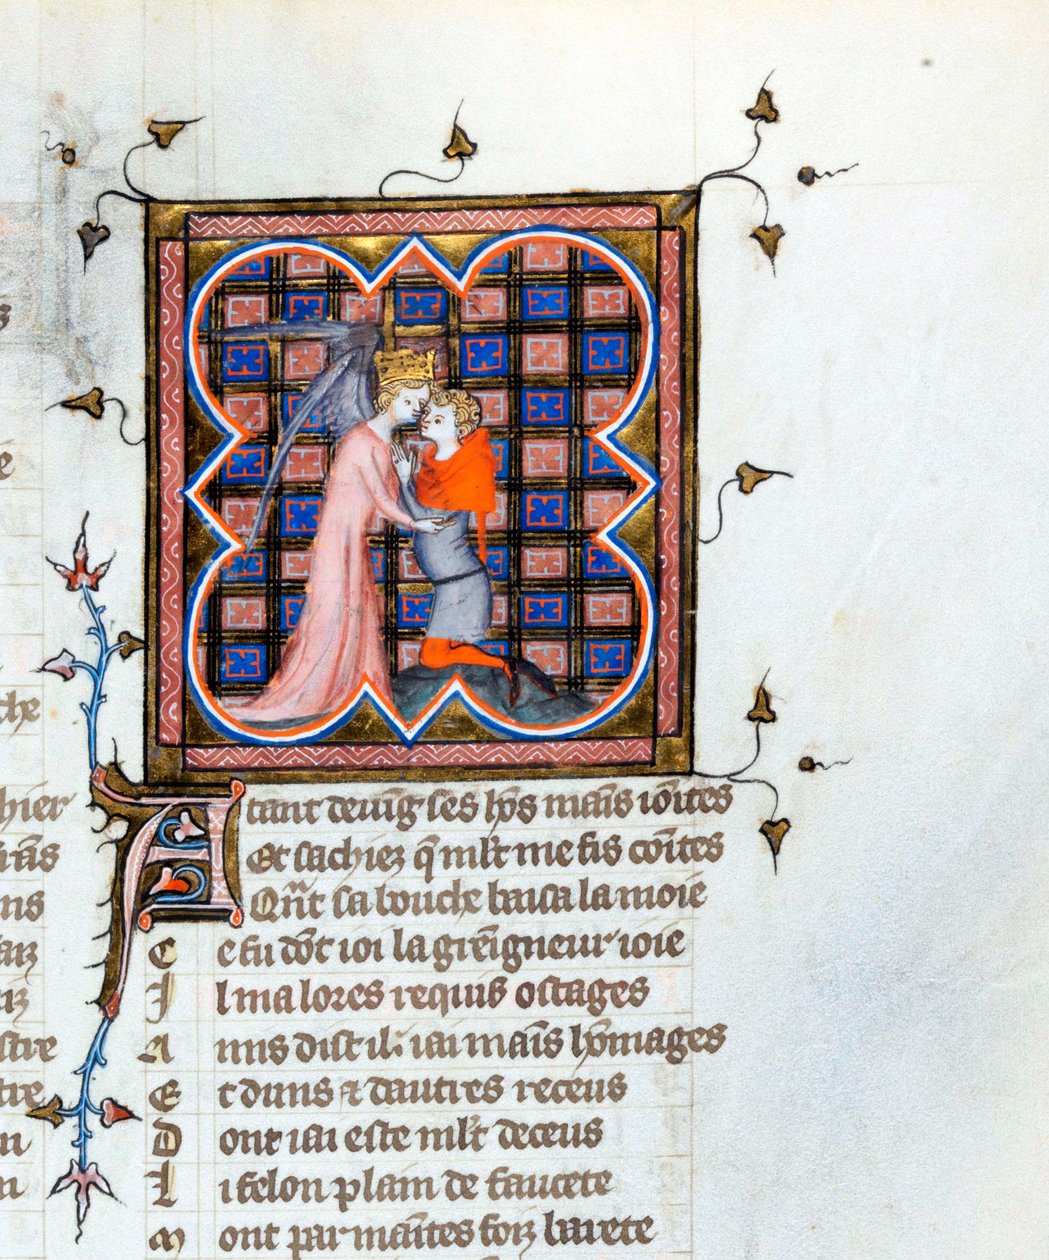 Atant deuīg ses hōs maīs iōites
Et sachiez q̄ ml't me fis cōites
Qnᵃt sa bouche baisa la moie
Ce fu dōt ioi la greigneur ioie
Il ma lores requis ostages
Amis dist il iai maīs hōmages
Et duns ⁊ dautres receus
Dont iai este ml't deceus
Li felon plain de faucete
Mont par maītes foiz barete